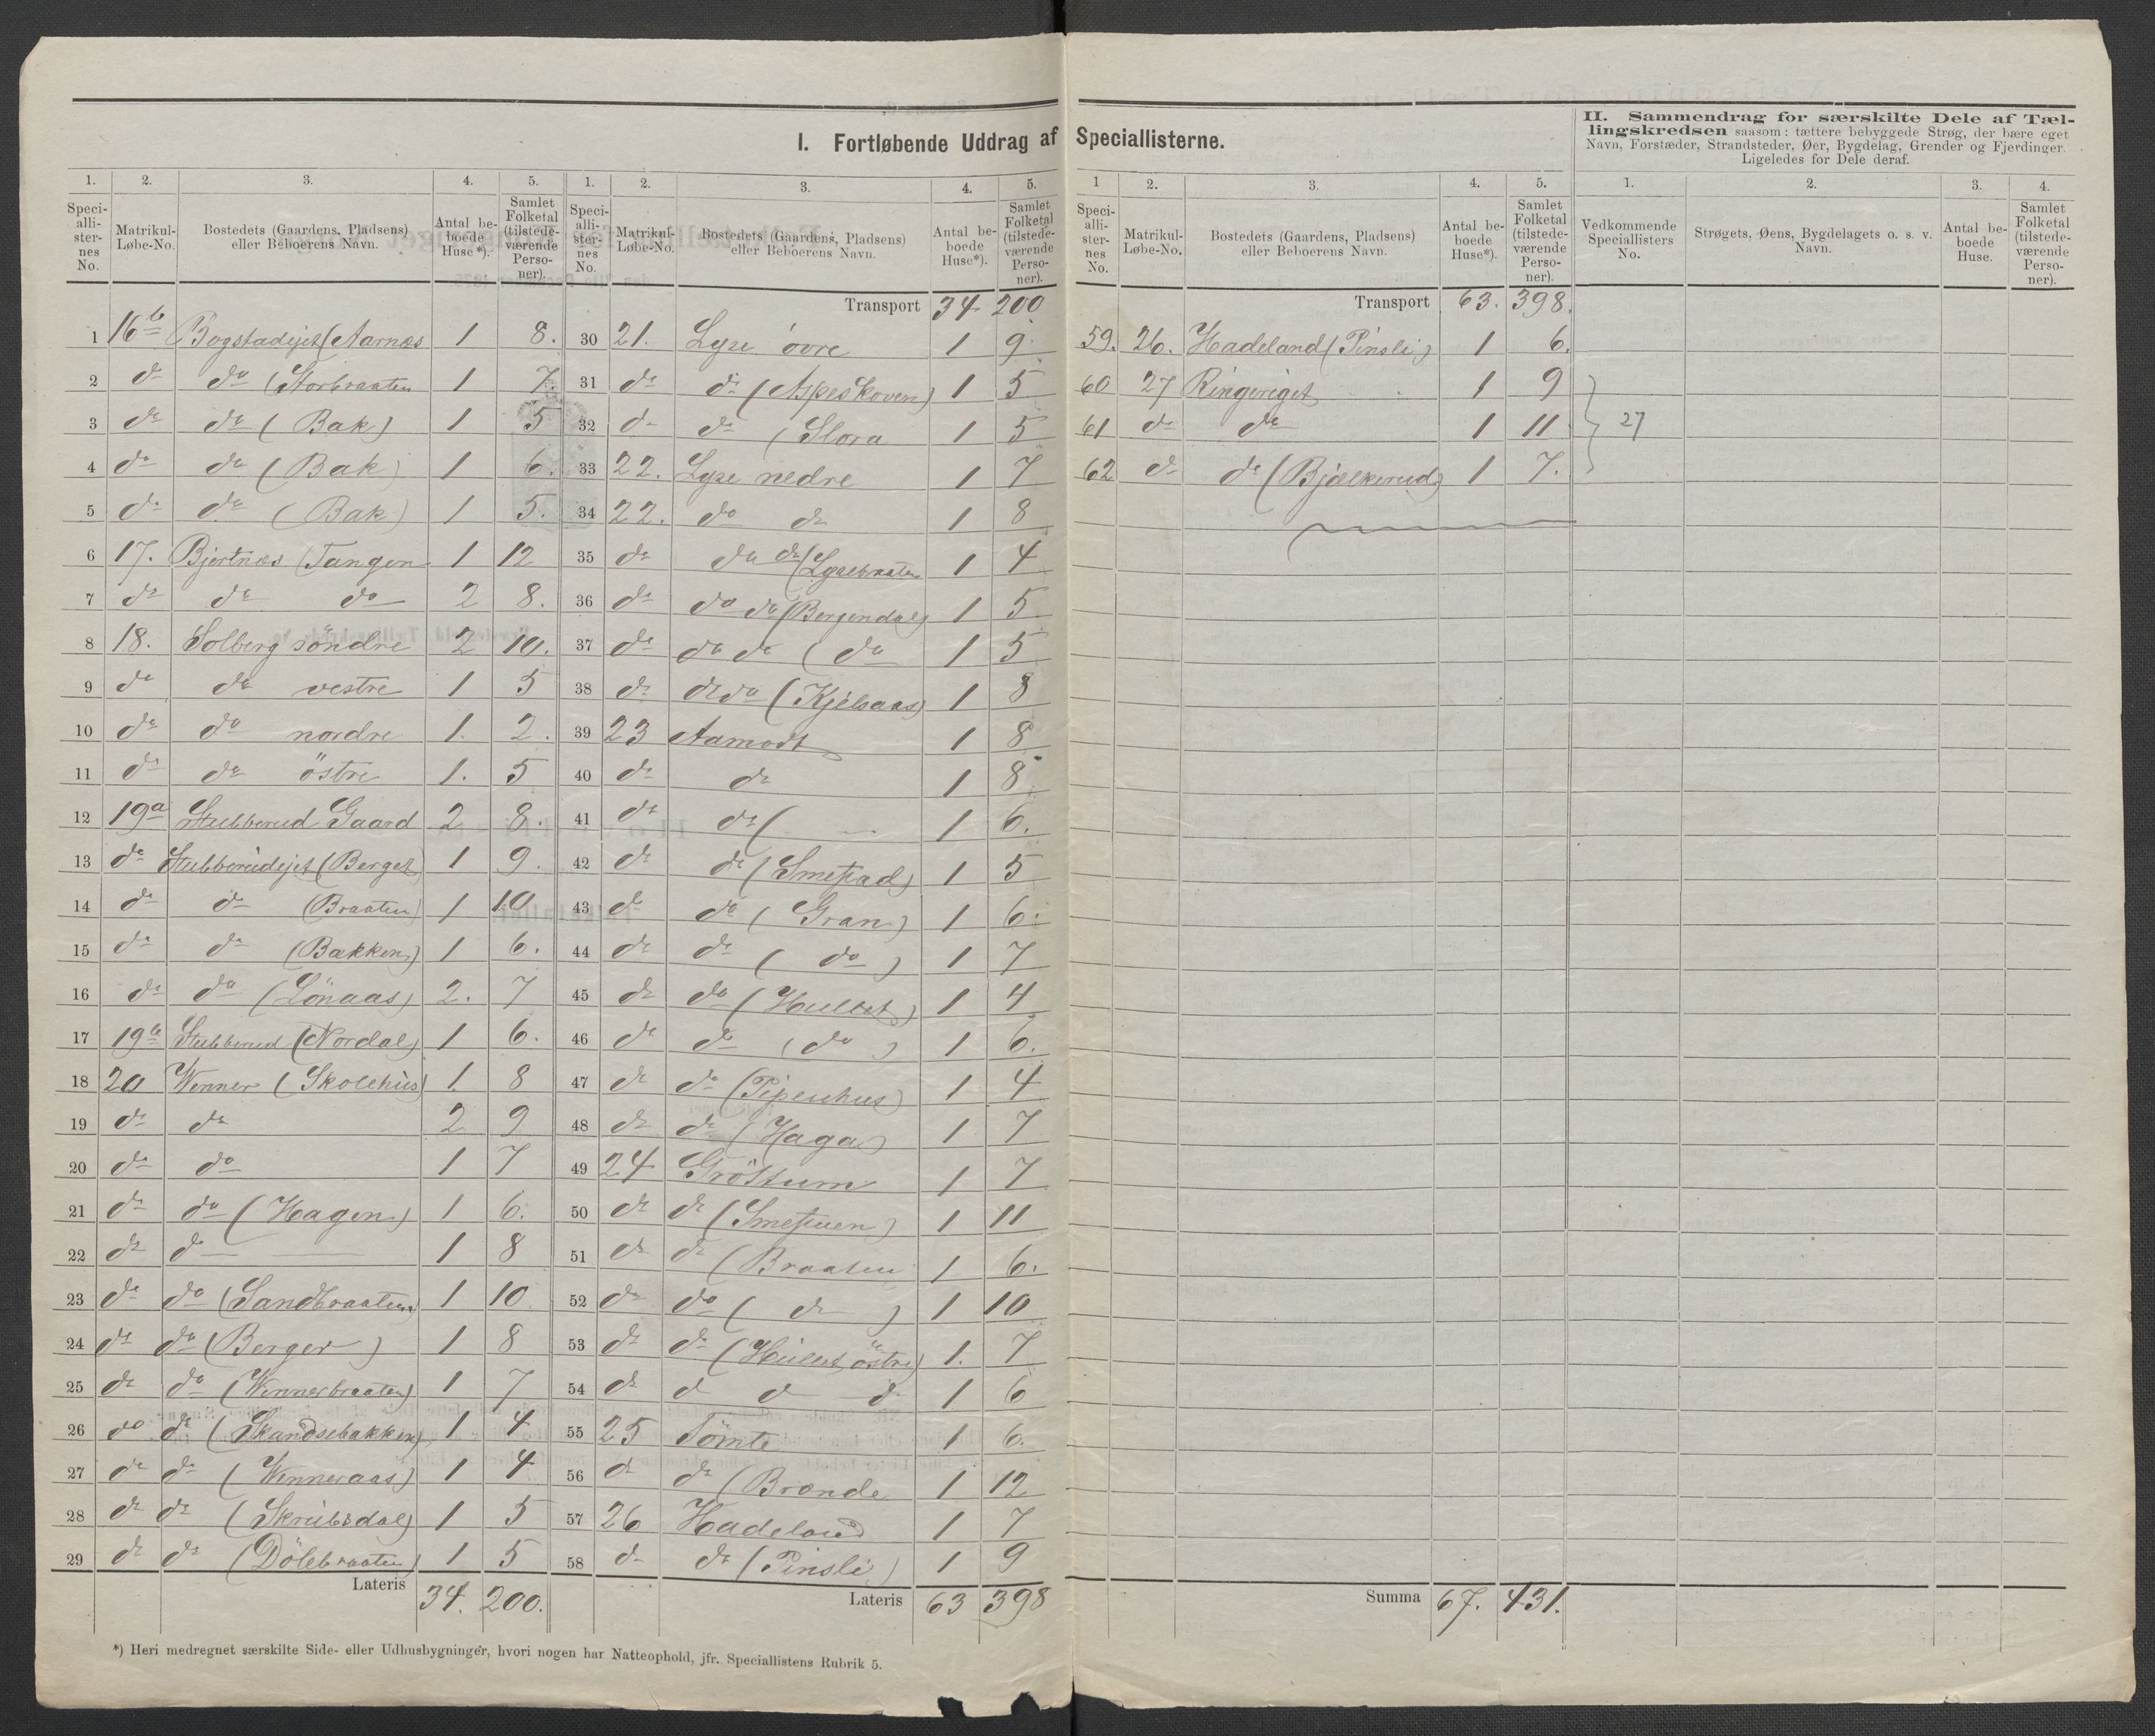 I. Fortløbende Uddrag af Speciallisterne.
1. 2. 3. 4. 5.
Speciallisternes No. Matrikul-Løbe-No. Bostedets (Gaardens, Pladsens) eller Beboerens Navn. Antal beboede Huse*). Samlet Folketal (tilstedeværende Personer).
1 16b Bogstadejet (Aarnæs 1 8.
2 do do (Storbraaten 1 7.
3 do do (Bak) 1 5
4 do do (Bak) 1 6.
5 do do (Bak) 1 5.
6 17. Bjertnæs (Tangen 1 12
7 do do do 2 8.
8 18. Solberg söndre 2 10.
9 do do vestre 1 5
10 do do nordre 1. 2.
11 do do östre 1. 5
12 19a Stubberud Gaard 2 8.
13 do Stubberudejet (Berget) 1 9.
14 do do (Braaten) 1 10
15 do do (Bakken) 1 6.
16 do do (Lönaas) 2. 7
17 19b Stubberud (Nordal) 1 6.
18 20 Wenner (Skolehus) 1. 8
19 do do 2 9
20 do do 1 7
21 do do (Hagen) 1 6.
22 do do 1 8
23 do do (Sandbraaten) 1 10
24 do do (Berger) 1 8
25 do do (Wennerbraaten) 1 7
26 do do (Skandsebakken) 1 4
27 do do (Wenneraas) 1 4
28 do do (Skrubsdal) 1 5
29 do do (Dölebraaten) 1 5
Lateris 34. 200.
1. 2. 3. 4. 5.
Speciallisternes No. Matrikul-Løbe-No. Bostedets (Gaardens, Pladsens) eller Beboerens Navn. Antal beboede Huse*). Samlet Folketal (tilstedeværende Personer).
Transport 34 200
30 21. Lyse övre 1 9.
31 do do (Aspeskoven) 1 5
32 do do (Slora 1 5
33 22. Lyse nedre 1 7
34 22. do do 1 8
35 do do do (Lysebraaten 1 4
36 do do do (Bergendal) 1 5
37 do do do (do 1 5
38 do do do (Kjelsaas) 1 8
39 23 Aamodt 1 8
40 do do 1 8
41 do do ( 1 6.
42 do do (Smestad) 1 5
43 do do (Gran) 1 6.
44 do do (do) 1 7
45 do do (Hullet) 1 4
46 do do (do) 1 6.
47 do do (Pipenhus) 1 4
48 do do (Haga) 1 7
49 24 Gröstum 1 7
50 do do (Smestuen) 1 11
51 do do (Braaten 1 6.
52 do do (do) 1 10
53 do do (Hullet östre) 1. 7
54 do do do do 1 6
55 25 Tömte 1 6.
56 do do (Brænde 1 12
57 26 Hadeland 1 7
58 do do (Pinsli) 1 9
Lateris 63 398
1 2. 3. 4. 5.
Speciallisternes No. Matrikul-Løbe-No. Bostedets (Gaardens, Pladsens) eller Beboerens Navn. Antal beboede Huse*). Samlet Folketal (tilstedeværende Personer).
Transport 63. 398.
59. 26. Hadeland (Pinsli) 1 6.
60 27 Ringeriget 1 9
61 do do 1 11
62 do do (Bjælkerud) 1 7.
27
Summa 67. 431.
II. Sammendrag for særskilte Dele af Tællingskredsen saasom: tættere bebyggede Strøg, der bære eget
Navn, Forstæder, Strandsteder, Øer, Bygdelag, Grender og Fjerdinger.
Ligeledes for Dele deraf.
1. 2. 3. 4.
Vedkommende Speciallisters No. Strøgets, Øens, Bygdelagets o. s. v. Navn. Antal beboede Huse. Samlet Folketal (tilstedeværende Personer).
*) Heri medregnet særskilte Side- eller Udhusbygninger, hvori nogen har Natteophold, jfr. Speciallistens Rubrik 5.